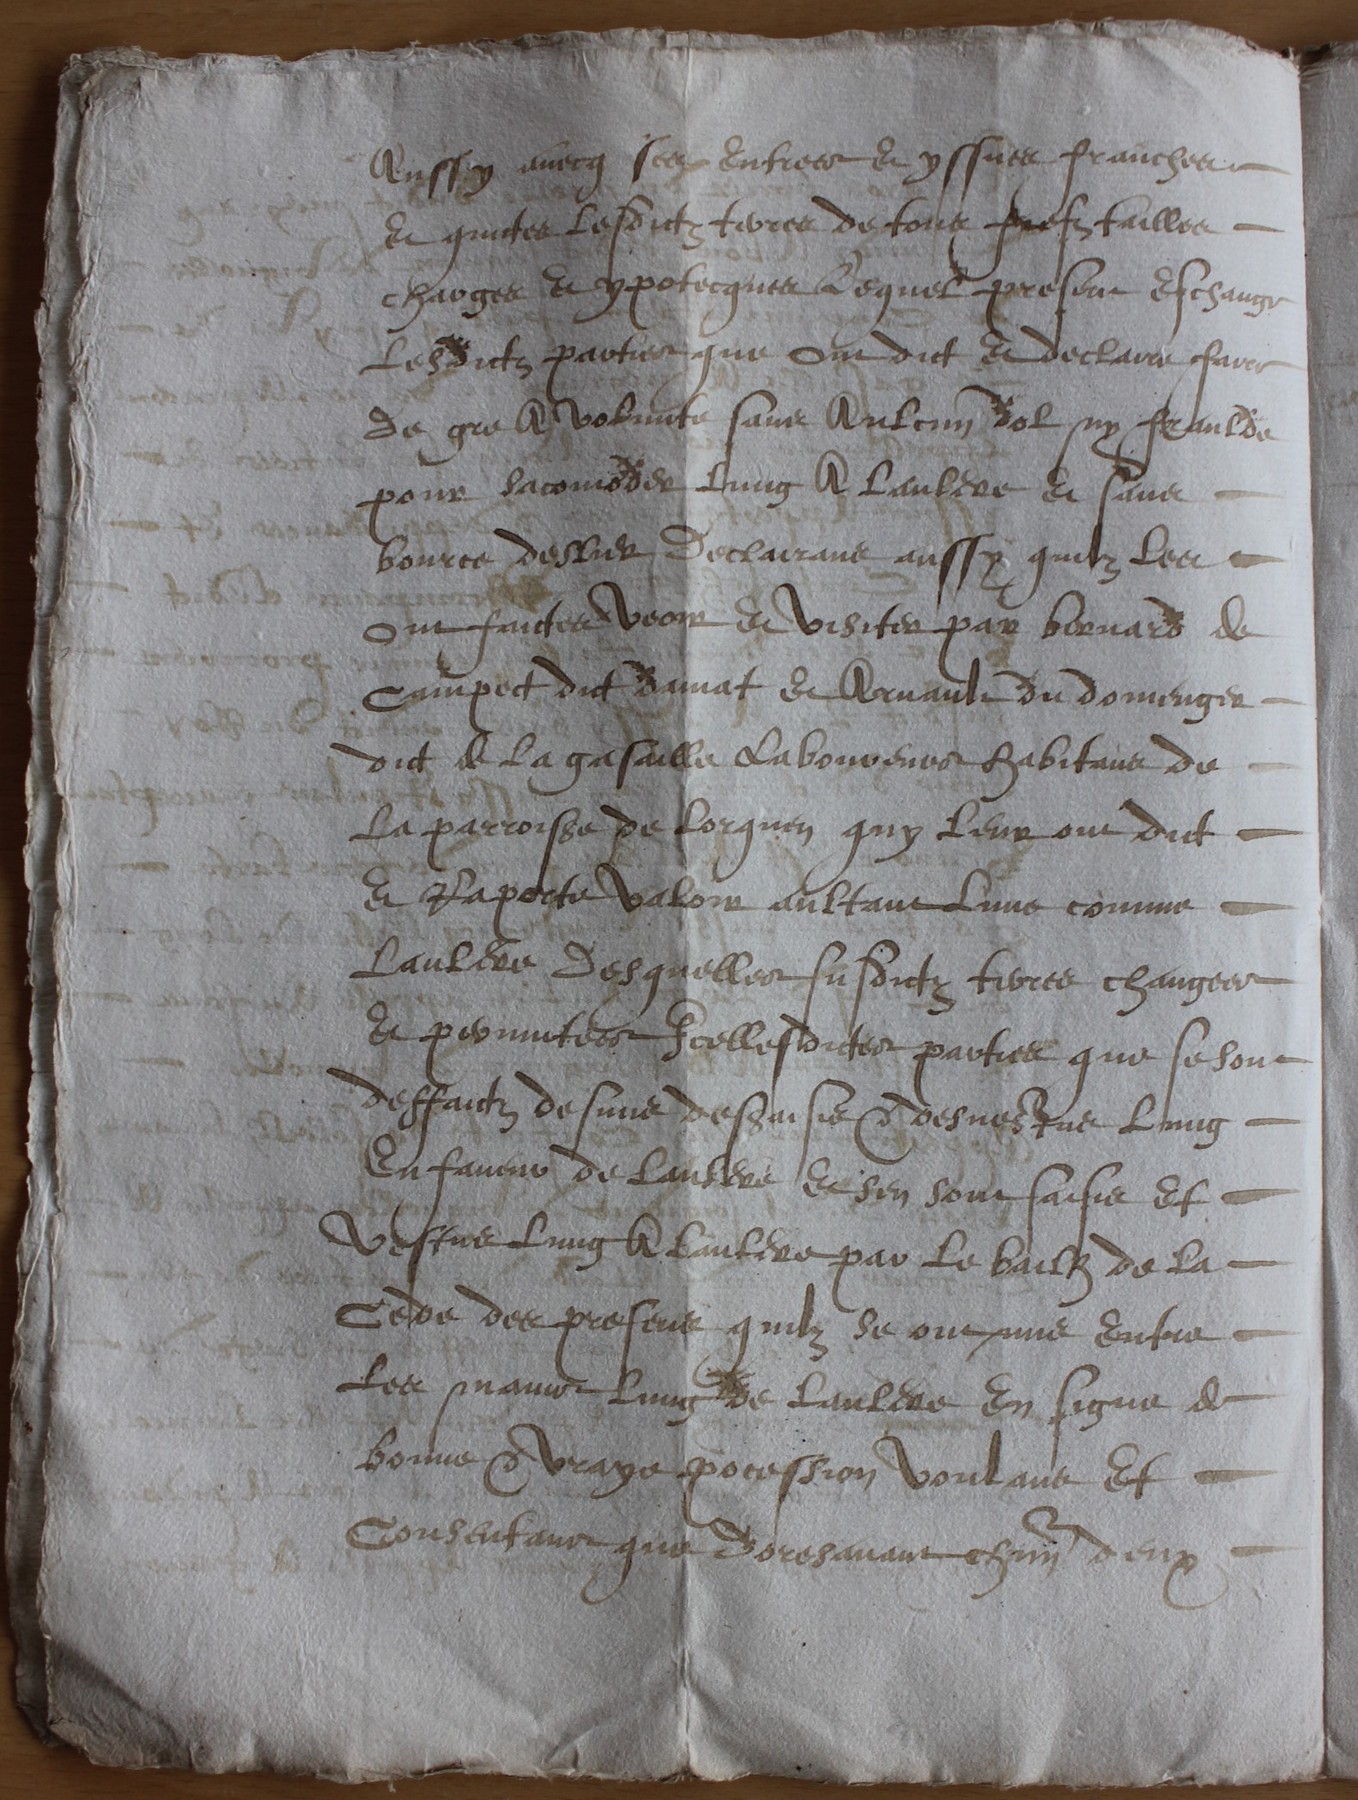 Aussy avecq ses entrees et yssues franches
et quictes lesdictz terres de tous fiefz tailles
charges et ypotecques Lequel present eschange
lesdictz parties que ont dict et declaire faire
de gre A volunte sans Aulcun dol ny fraulde
pour sacomoder lung A laultre et sans
bource deslier Declairans aussy quilz les
ont faictes veoir et visiter par bernard de
Campect dict damat et Arnault du domenger
dict de la gasaille Laboureurs habitans de
la parroisse de lorquen quy leur ont dict
et Raporte valoir aultant lune comme
laultre Desquelles susdictz terres changees
et permutees Icellesdictes parties que se sont
deffaictz desmis dessaisis & desvestus lung
En faveur de laultre et sen sont saisis et
vestus lung A laultre par le bailh de la
Cede des presens quilz se ont mis entre
les mains lung de laultre en signe de
bonne & vraye pocession voulans et
Consentans que doresavant chun deux